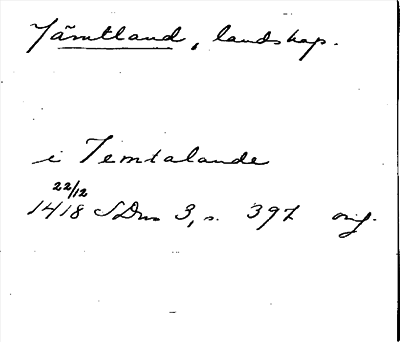 Jämtland, landskap.
i Jemtalande
22/12
1418 SDns 3, s. 397 orig.